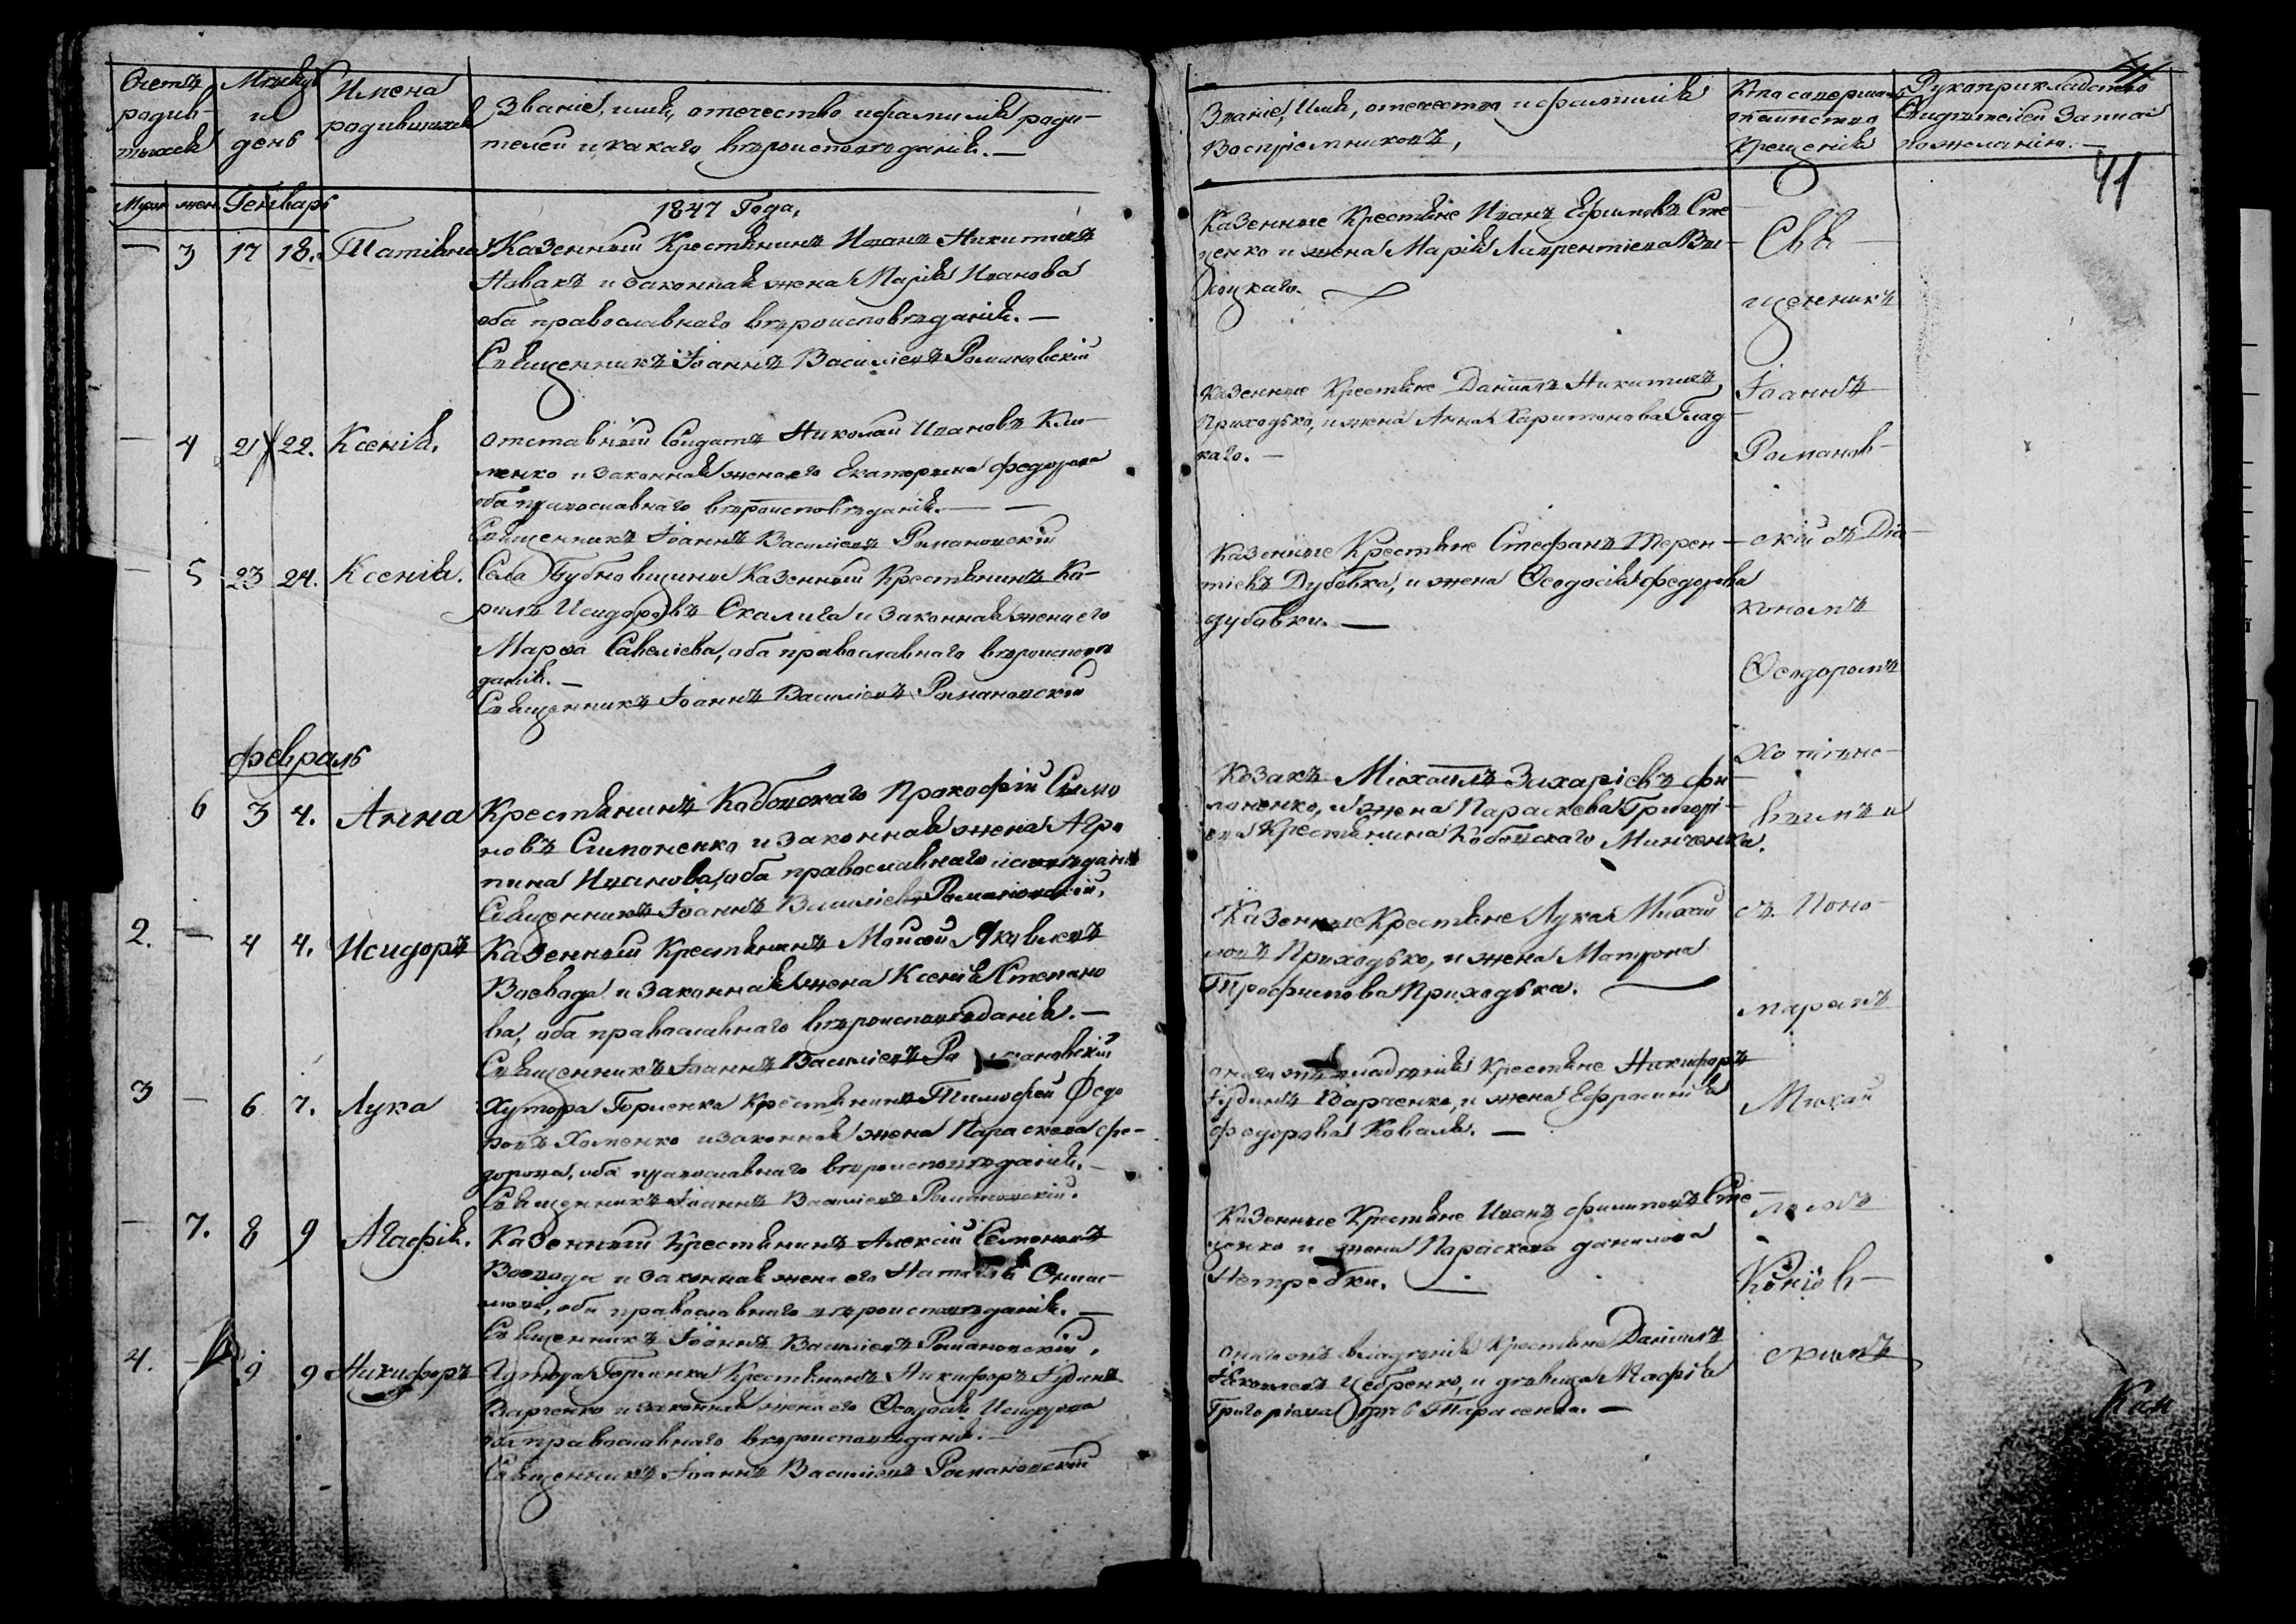 Счетъ родив-шихся
Мѣсяцъ и день
Имена родившихся
Званіе, имя, отечество и фамилія роди-
телей и какаго вѣроисповѣданія. —
Муж. жен. Генварь
1847 Года,
— 3 17 18. Татіяна
Казенный Крестянинъ Иванъ Никитинъ
Новакъ и законная жена Марія Иванова
оба православнаго вѣроисповѣданія. —
Священникъ Іоаннъ Василіевъ Романовскій
— 4 21 22. Ксенія.
отставный Солдатъ Николай Ивановъ Кли-
менко и законная жена его Екатерина Федорова
оба православнаго вѣроисповѣданія. —
Священникъ Іоаннъ Василіевъ Романовскій
— 5 23 24. Ксенія.
Села Бубновщины Казенный Крестянинъ Ки-
рилъ Исидоровъ Скалига и законная жена его
Марѳа Савеліева, оба православнаго вѣроисповѣ
данія. —
Священникъ Іоаннъ Василіевъ Романовскій
Февраль
6 3 4. Анна
Крестянинъ Кобовскаго Прокофій Симо
новъ Симоненко и законная жена Агри
пина Иванова, оба православнаго исповѣданія
Священникъ Іоаннъ Василіевъ Романовскій,
2. — 4 4. Исидоръ
Казенный Крестянинъ Мойсей Яковлевъ
Воевода и законная жена Ксенія Степано
ва, оба православнаго вѣроисповѣданія. —
Священникъ Іоаннъ Василіевъ Романовскій
3 — 6 7. Лука
Хутора Горленка Крестянинъ Тимофей Федо
ровъ Хоменко и законная жена Параскева Фе-
дорова, оба православнаго вѣроисповѣданія. —
Священникъ Іоаннъ Василіевъ Романовскій.
— 7. 8 9 Агафія.
Казенный Крестянинъ Алексій Семеновъ
Воевода и законная жена его Наталія
оба православнаго вѣроисповѣданія. —
Священникъ Іоаннъ Василіевъ Романовскій,
4. — 9 9 Никифоръ
Хутора Горленка Крестянинъ Никифоръ Іудинъ
Варченко и законная жена его Ѳеодосія Исидорова
оба православнаго вѣроисповѣданія. —
Священникъ Іоаннъ Василіевъ Романовскій
Званіе, Имя, отечество и фамилія
Воспріемниковъ,
Кто совершалъ
таинство
Крещенія
Рукоприкладство
Свидѣтелей Записи
по желанію. —
41
Казенные Крестяне Иванъ Ефимовъ Сте
ценко и жена Марія Лаврентіева Ви-
соцкаго.
Казенные Крестяне Даніилъ Никитинъ
Приходько, и жена Анна Харитонова Глад-
каго. —
Казенные Крестяне Стефанъ Терен-
тіевъ Дубовка, и жена Ѳеодосія Федорова
дубовки. —
Козакъ Михаилъ Захаріевъ Фи-
лоненко, и жена Параскева Григорі-
ева Крестянина Кобовскаго Минченка.
Казенные Крестяне Лука Михай
ловъ Приходько, и жена Матрона
Трофимова Приходька. —
онаго владѣнія Крестяне Никифоръ
Іудинъ Варченко, и жена Ефросинія
Федорова Коваля. —
Казенные Крестяне Иванъ Филиповъ Сте-
ценко и жена Параскева данилова
Нетребки. —
владѣнія Крестяне Даніилъ
Яковлевъ Цебренко, и дѣвица Агафія
Григоріева Тарасенка. —
Свя
щенникъ
Іоаннъ
Романов-
скій съ Діа-
кономъ
Ѳеодоромъ
с. Поно-
маремъ
Михай
ломъ
Коніев-
скимъ
Кан